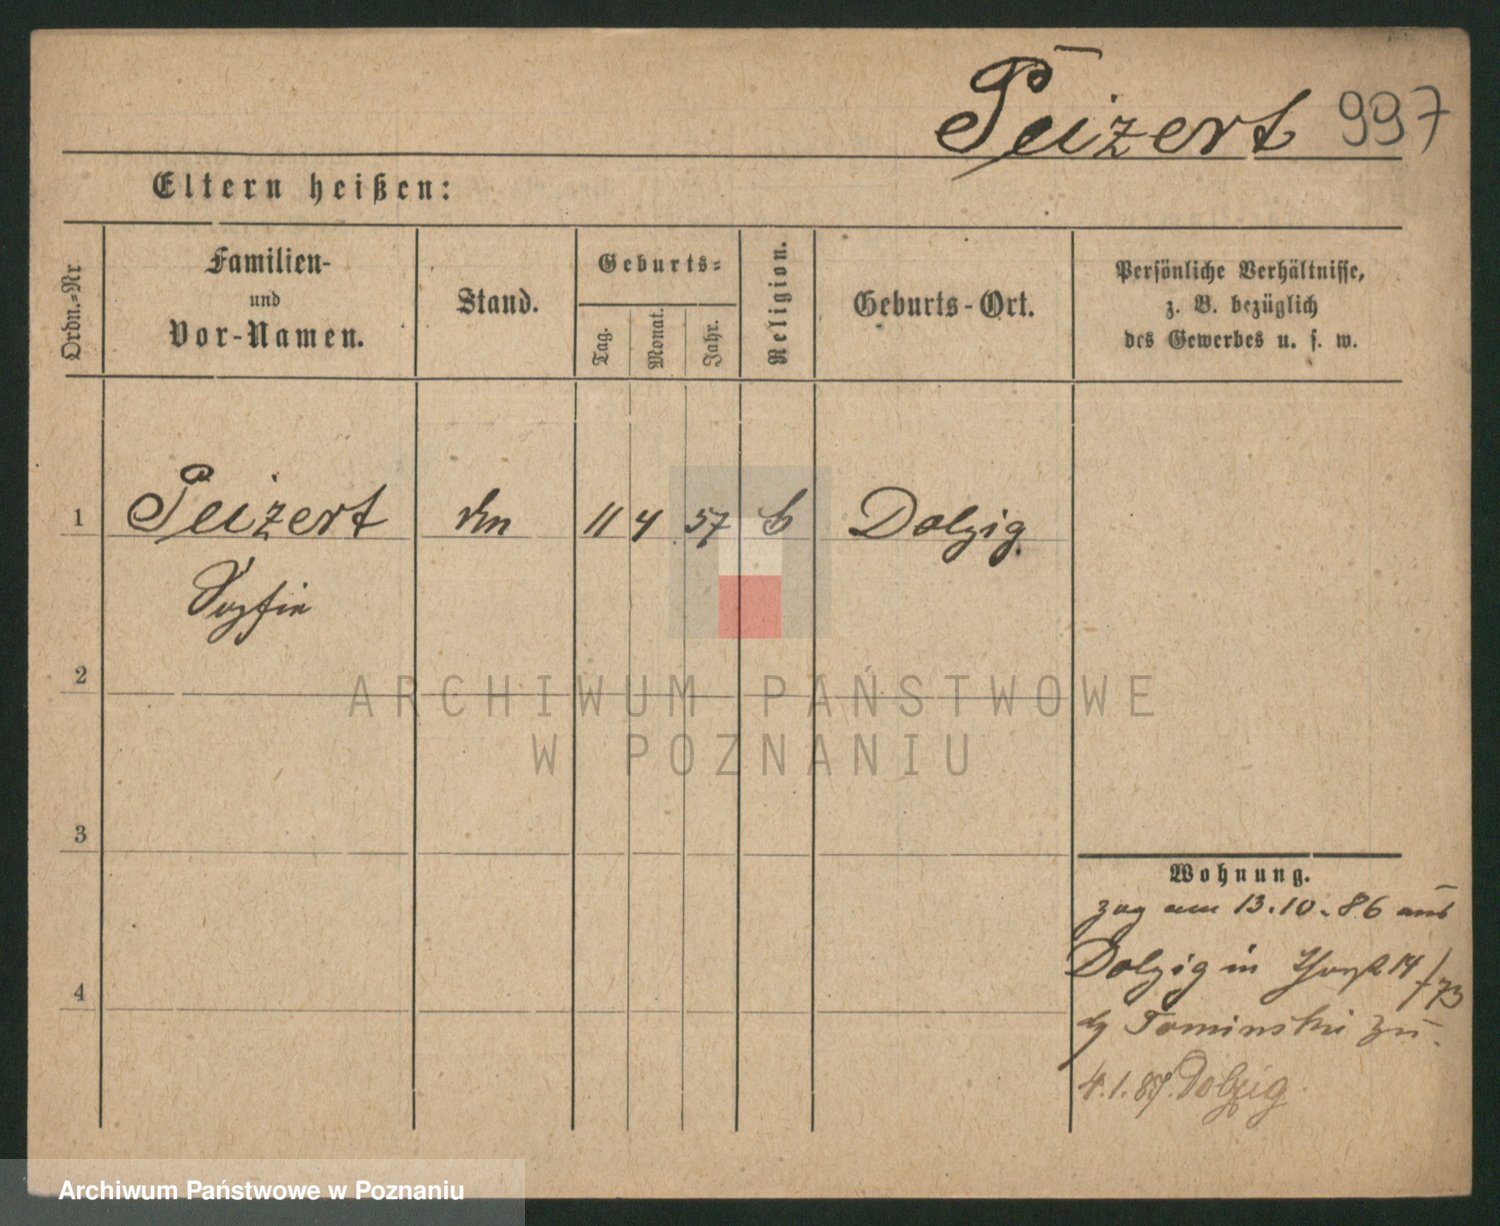 Peizert 997
Eltern heißen:
Ordn.=Nr
Familien-
und
Vor-Namen.
Stand.
Geburts=
Tag.
Monat.
Jahr.
Religion.
Geburts-Ort.
Persönliche Verhältnisse,
z. B. bezüglich
des Gewerbes u. s. w.
1 Peizert 11 4 57 Dolzig.
Sophie
2
3
4
Wohnung.
zog am 13.10.86 aus
Dolzig in 14/73
Tominski zu.
4.1.87. Dolzig
ARCHIWUM PAŃSTWOWE
W POZNANIU
Archiwum Państwowe w Poznaniu